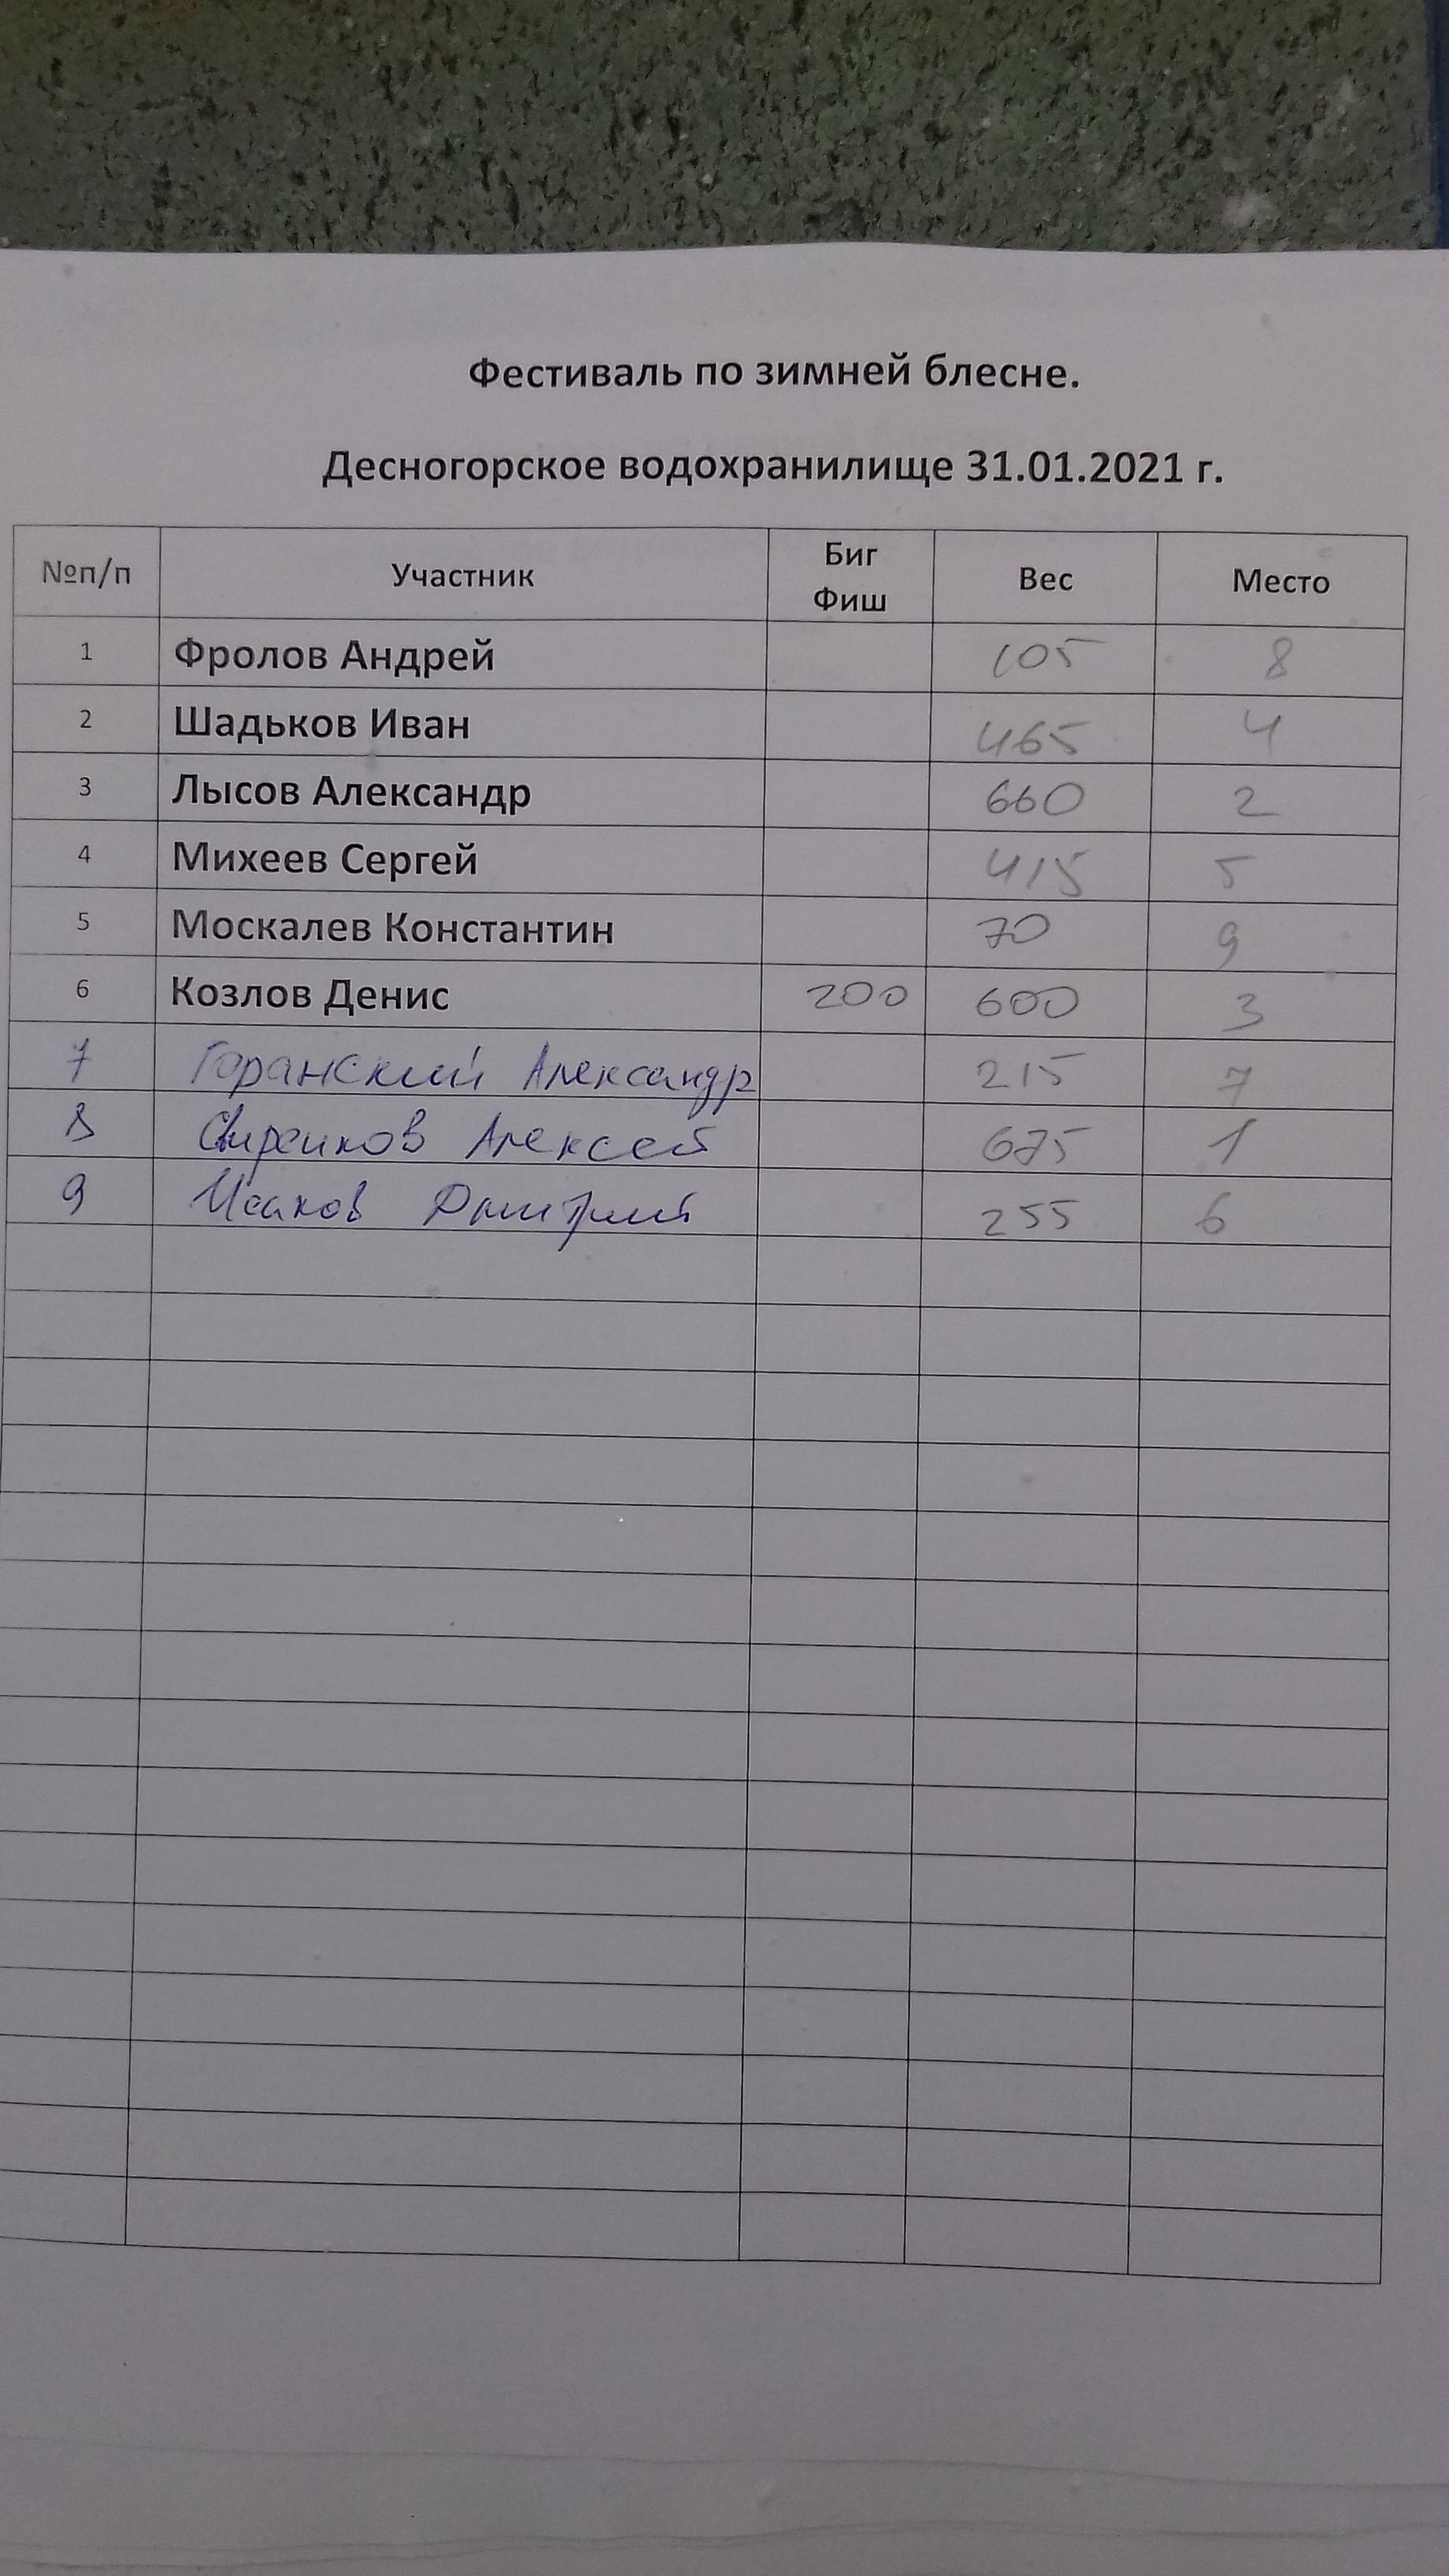 Фестиваль по зимней блесне.
Десногорское водохранилище 31.01.2021 г.
№п/п Участник Биг Фиш Вес Место
1 Фролов Андрей 105 8
2 Шадьков Иван 465 4
3 Лысов Александр 660 2
4 Михеев Сергей 415 5
5 Москалев Константин 70 9
6 Козлов Денис 200 600 3
7 Горанский Александр 215 7
8 Алексей 675 1
9 Исаков Дмитрий 255 6